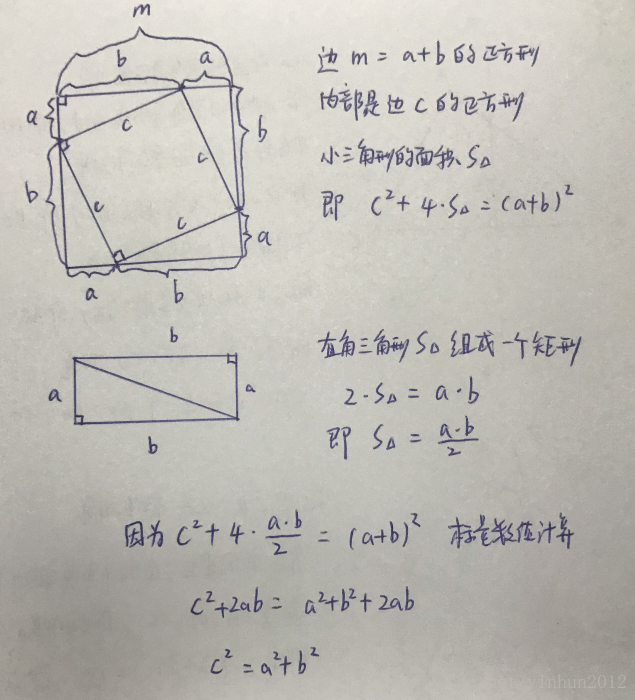 m
b a
a
c
b
c
b
c
c
a
a b
边 m = a+b 的正方形
内部是边 c 的正方形
小三角形的面积 S△
即 c²+4·S△=(a+b)²
b
a
a
b
直角三角形 S△ 组成一个矩形
2·S△ = a·b
即 S△ = a·b/2
因为 c²+4·a·b/2 = (a+b)² 标量数值计算
c²+2ab = a²+b²+2ab
c² = a²+b²